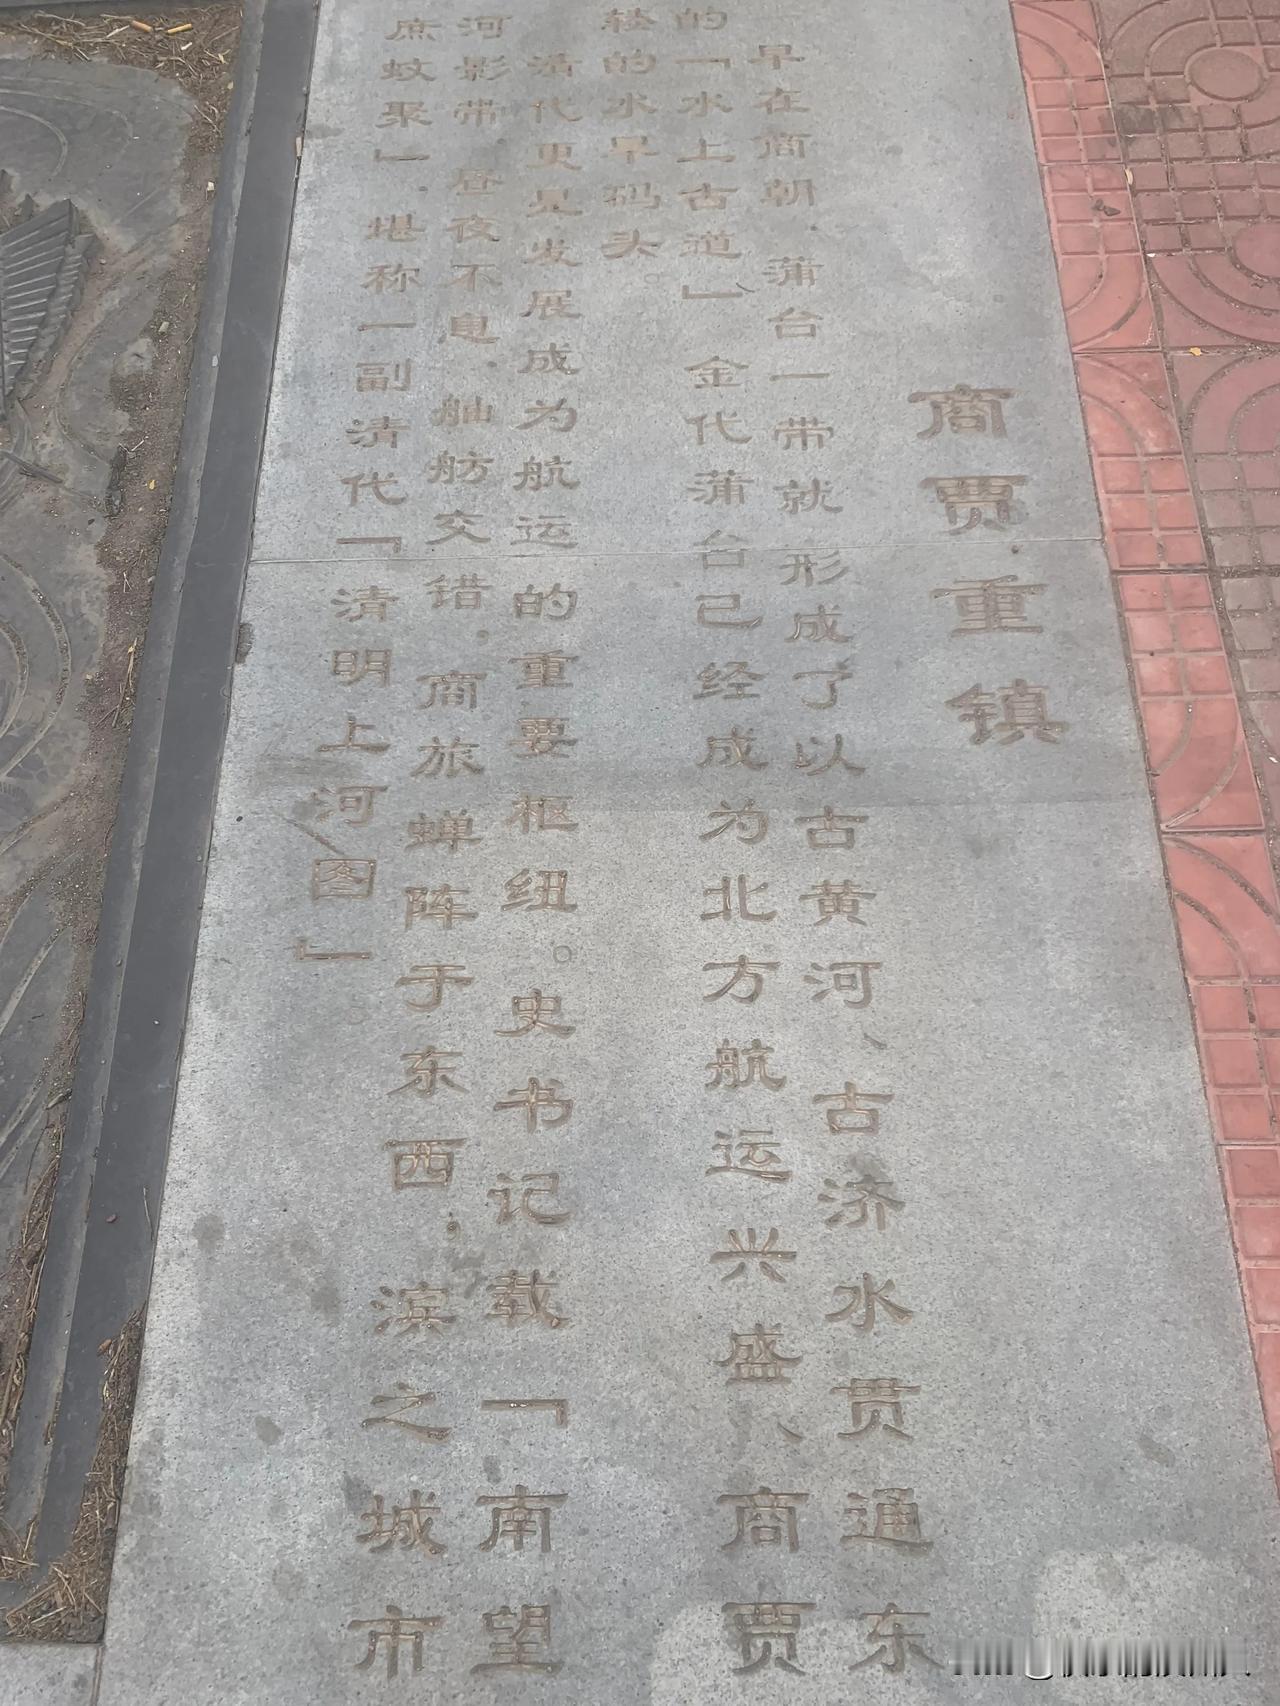 商贾重镇
早在商朝，蒲台一带就形成了以古黄河、古济水贯通东
的「水上古道」 金代蒲台已经成为北方航运兴盛、商贾
的水旱码头。
清代更是发展成为航运的重要枢纽。史书记载「南望
河影带，昼夜不电，舳舫交错，商旅蝉阵于东西，滨之城市
庶蚊聚」，堪称一副清代「清明上河图」。